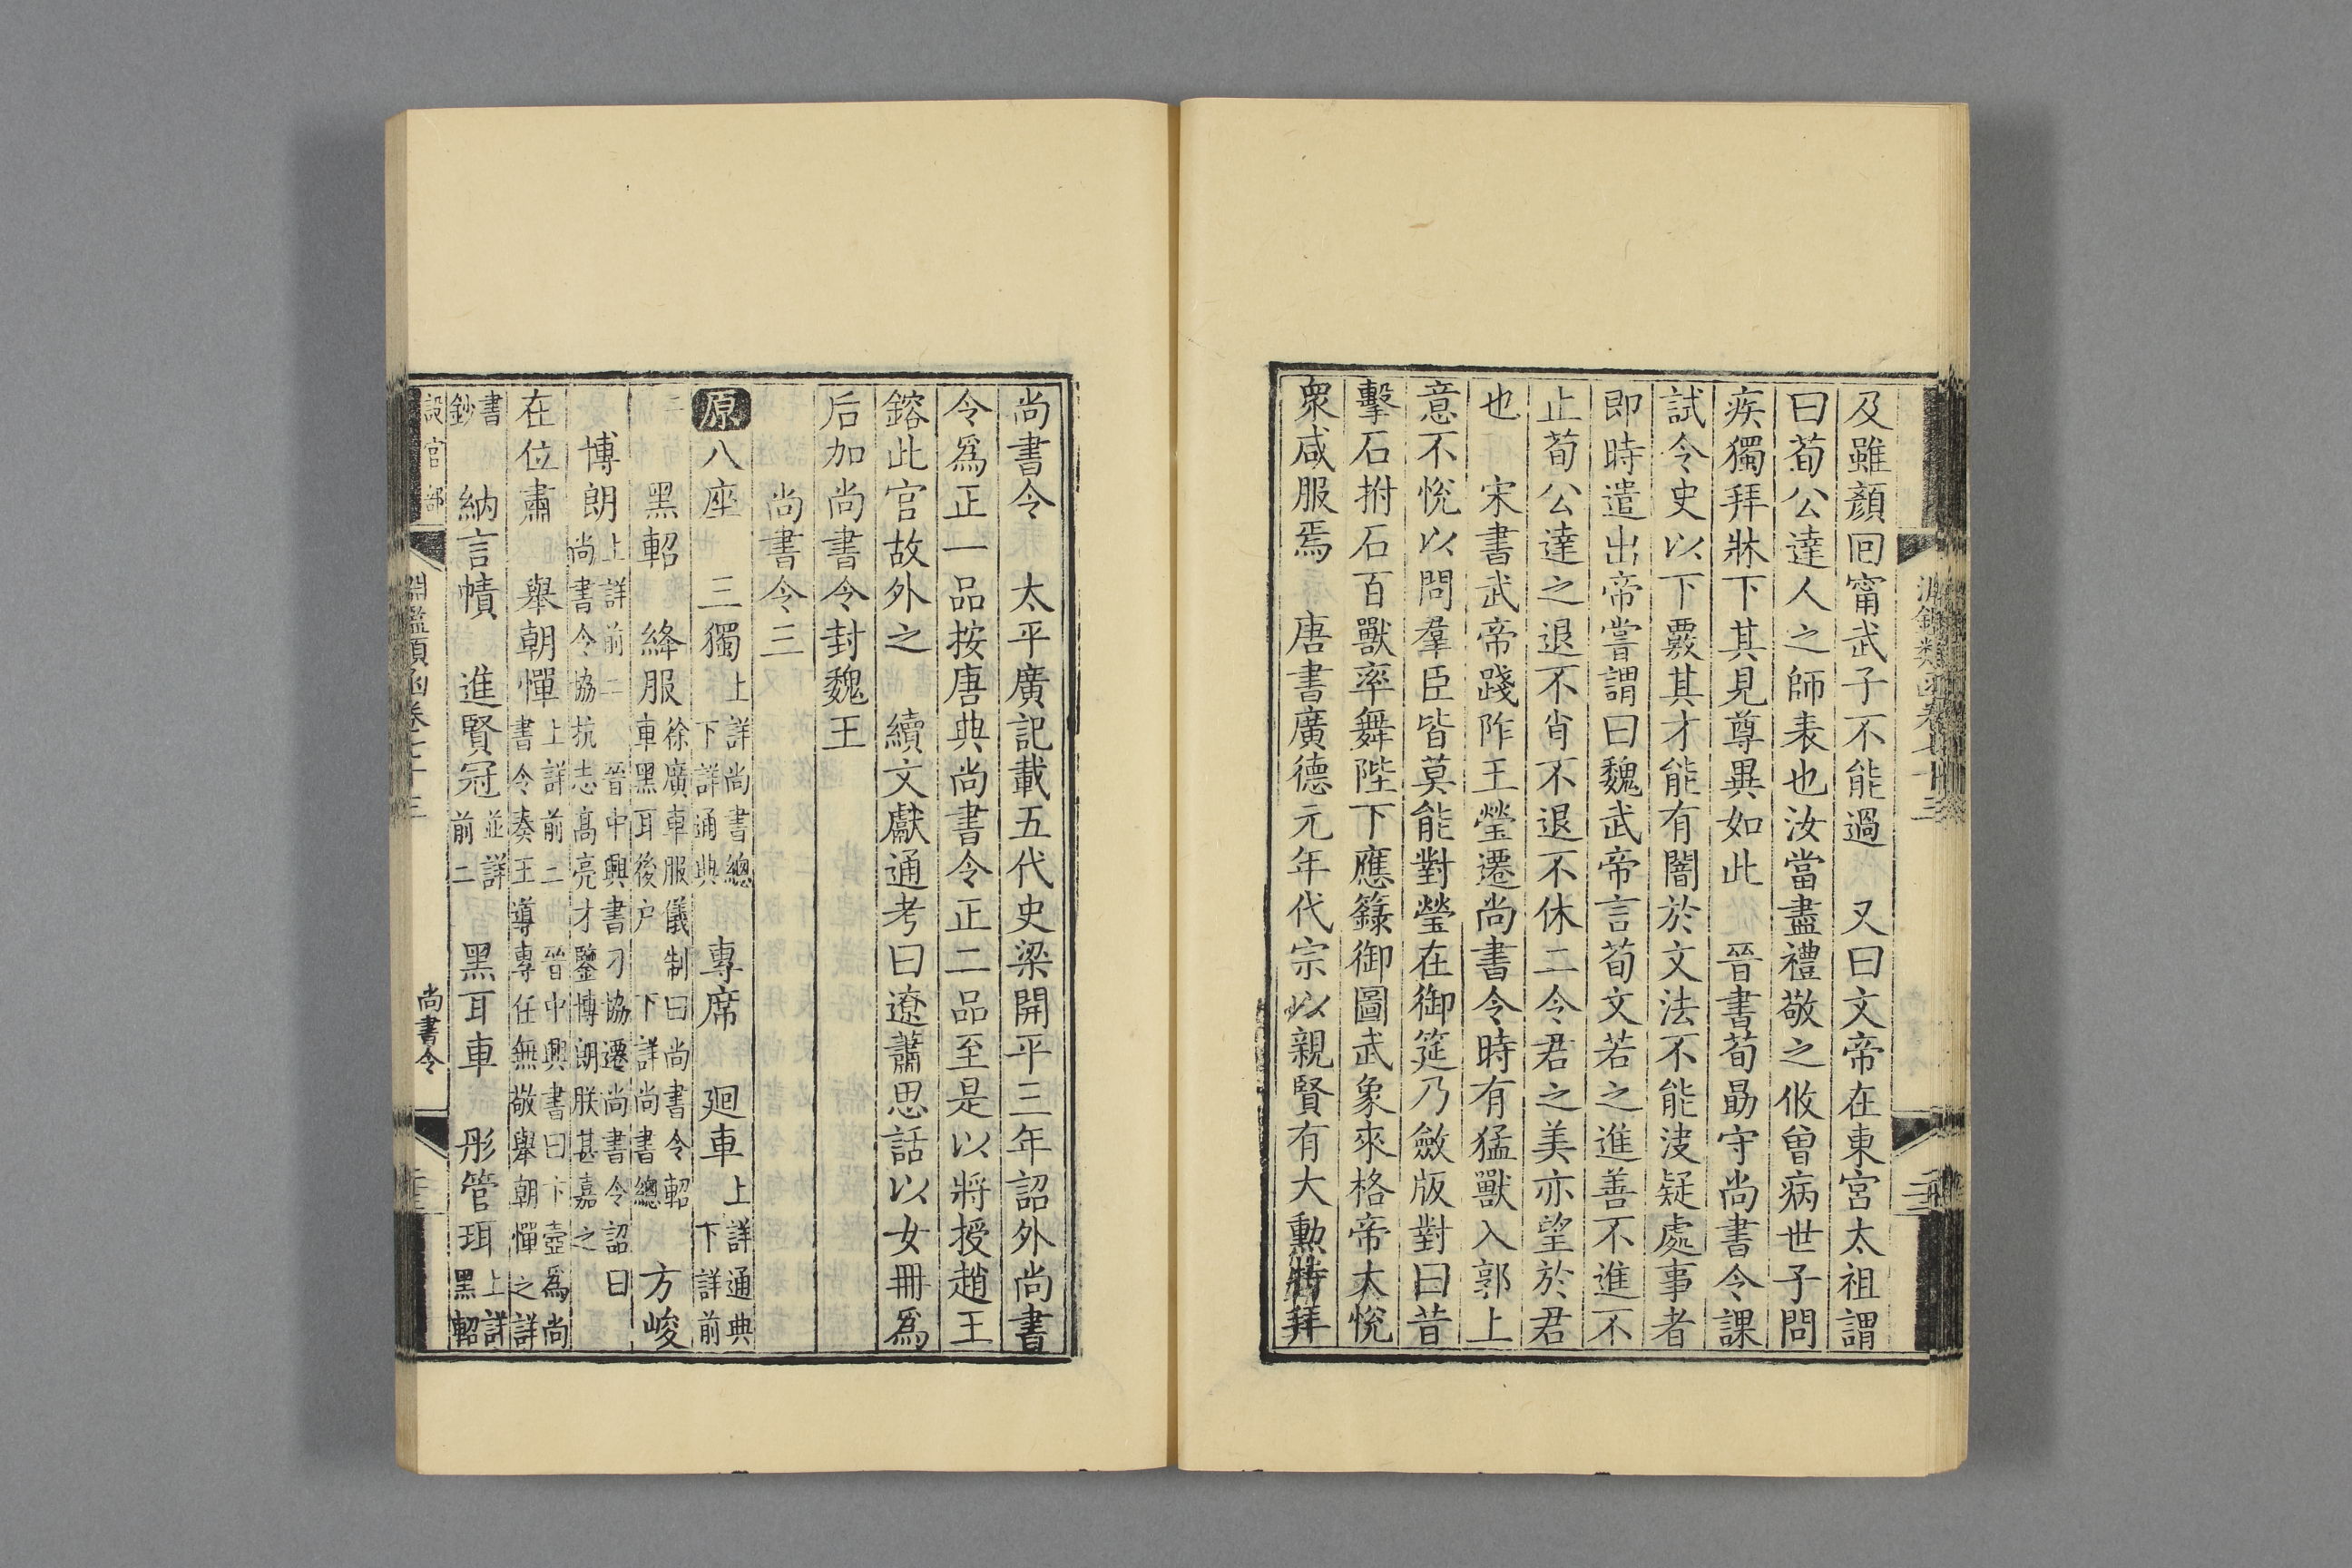 及雖顏回甯武子不能過　又曰文帝在東宮太祖謂
曰荀公達人之師表也汝當盡禮敬之攸曾病世子問
疾獨拜牀下其見尊異如此　晉書荀勗守尚書令課
試令史以下覈其才能有闇於文法不能決疑處事者
即時遣出帝嘗謂曰魏武帝言荀文若之進善不進不
止荀公達之退不肖不退不休二令君之美亦望於君
也　宋書武帝踐阼王瑩遷尚書令時有猛獸入郭上
意不悅以問羣臣皆莫能對瑩在御筵乃斂版對曰昔
擊石拊石百獸率舞陛下應籙御圖武象來格帝大悅
衆咸服焉　唐書廣德元年代宗以親賢有大勲特拜
尚書令　太平廣記載五代史梁開平三年詔外尚書
令爲正一品按唐典尚書令正二品至是以將授趙王
鎔此官故外之　續文獻通考曰遼蕭思話以女冊爲
后加尚書令封魏王
尚書令三
原八座　三獨上詳尚書總
下詳通典　專席　廻車上詳通典
下詳前
二　黑軺　絳服徐廣車服儀制曰尚書令軺
車黑耳後户　下詳尚書總　方峻
博朗上詳前二　晉中興書刁協遷尚書令詔曰
尚書令協抗志高亮才鑒博朗朕甚嘉之
在位肅　舉朝憚上詳前二　晉中興書曰卞壼爲尚
書令奏王導專任無敬舉朝憚之詳
書
鈔　納言幘　進賢冠並詳
前二　黑耳車　彤管珥上詳
黑軺
設官部
淵鑑類函卷七十三
尚書令